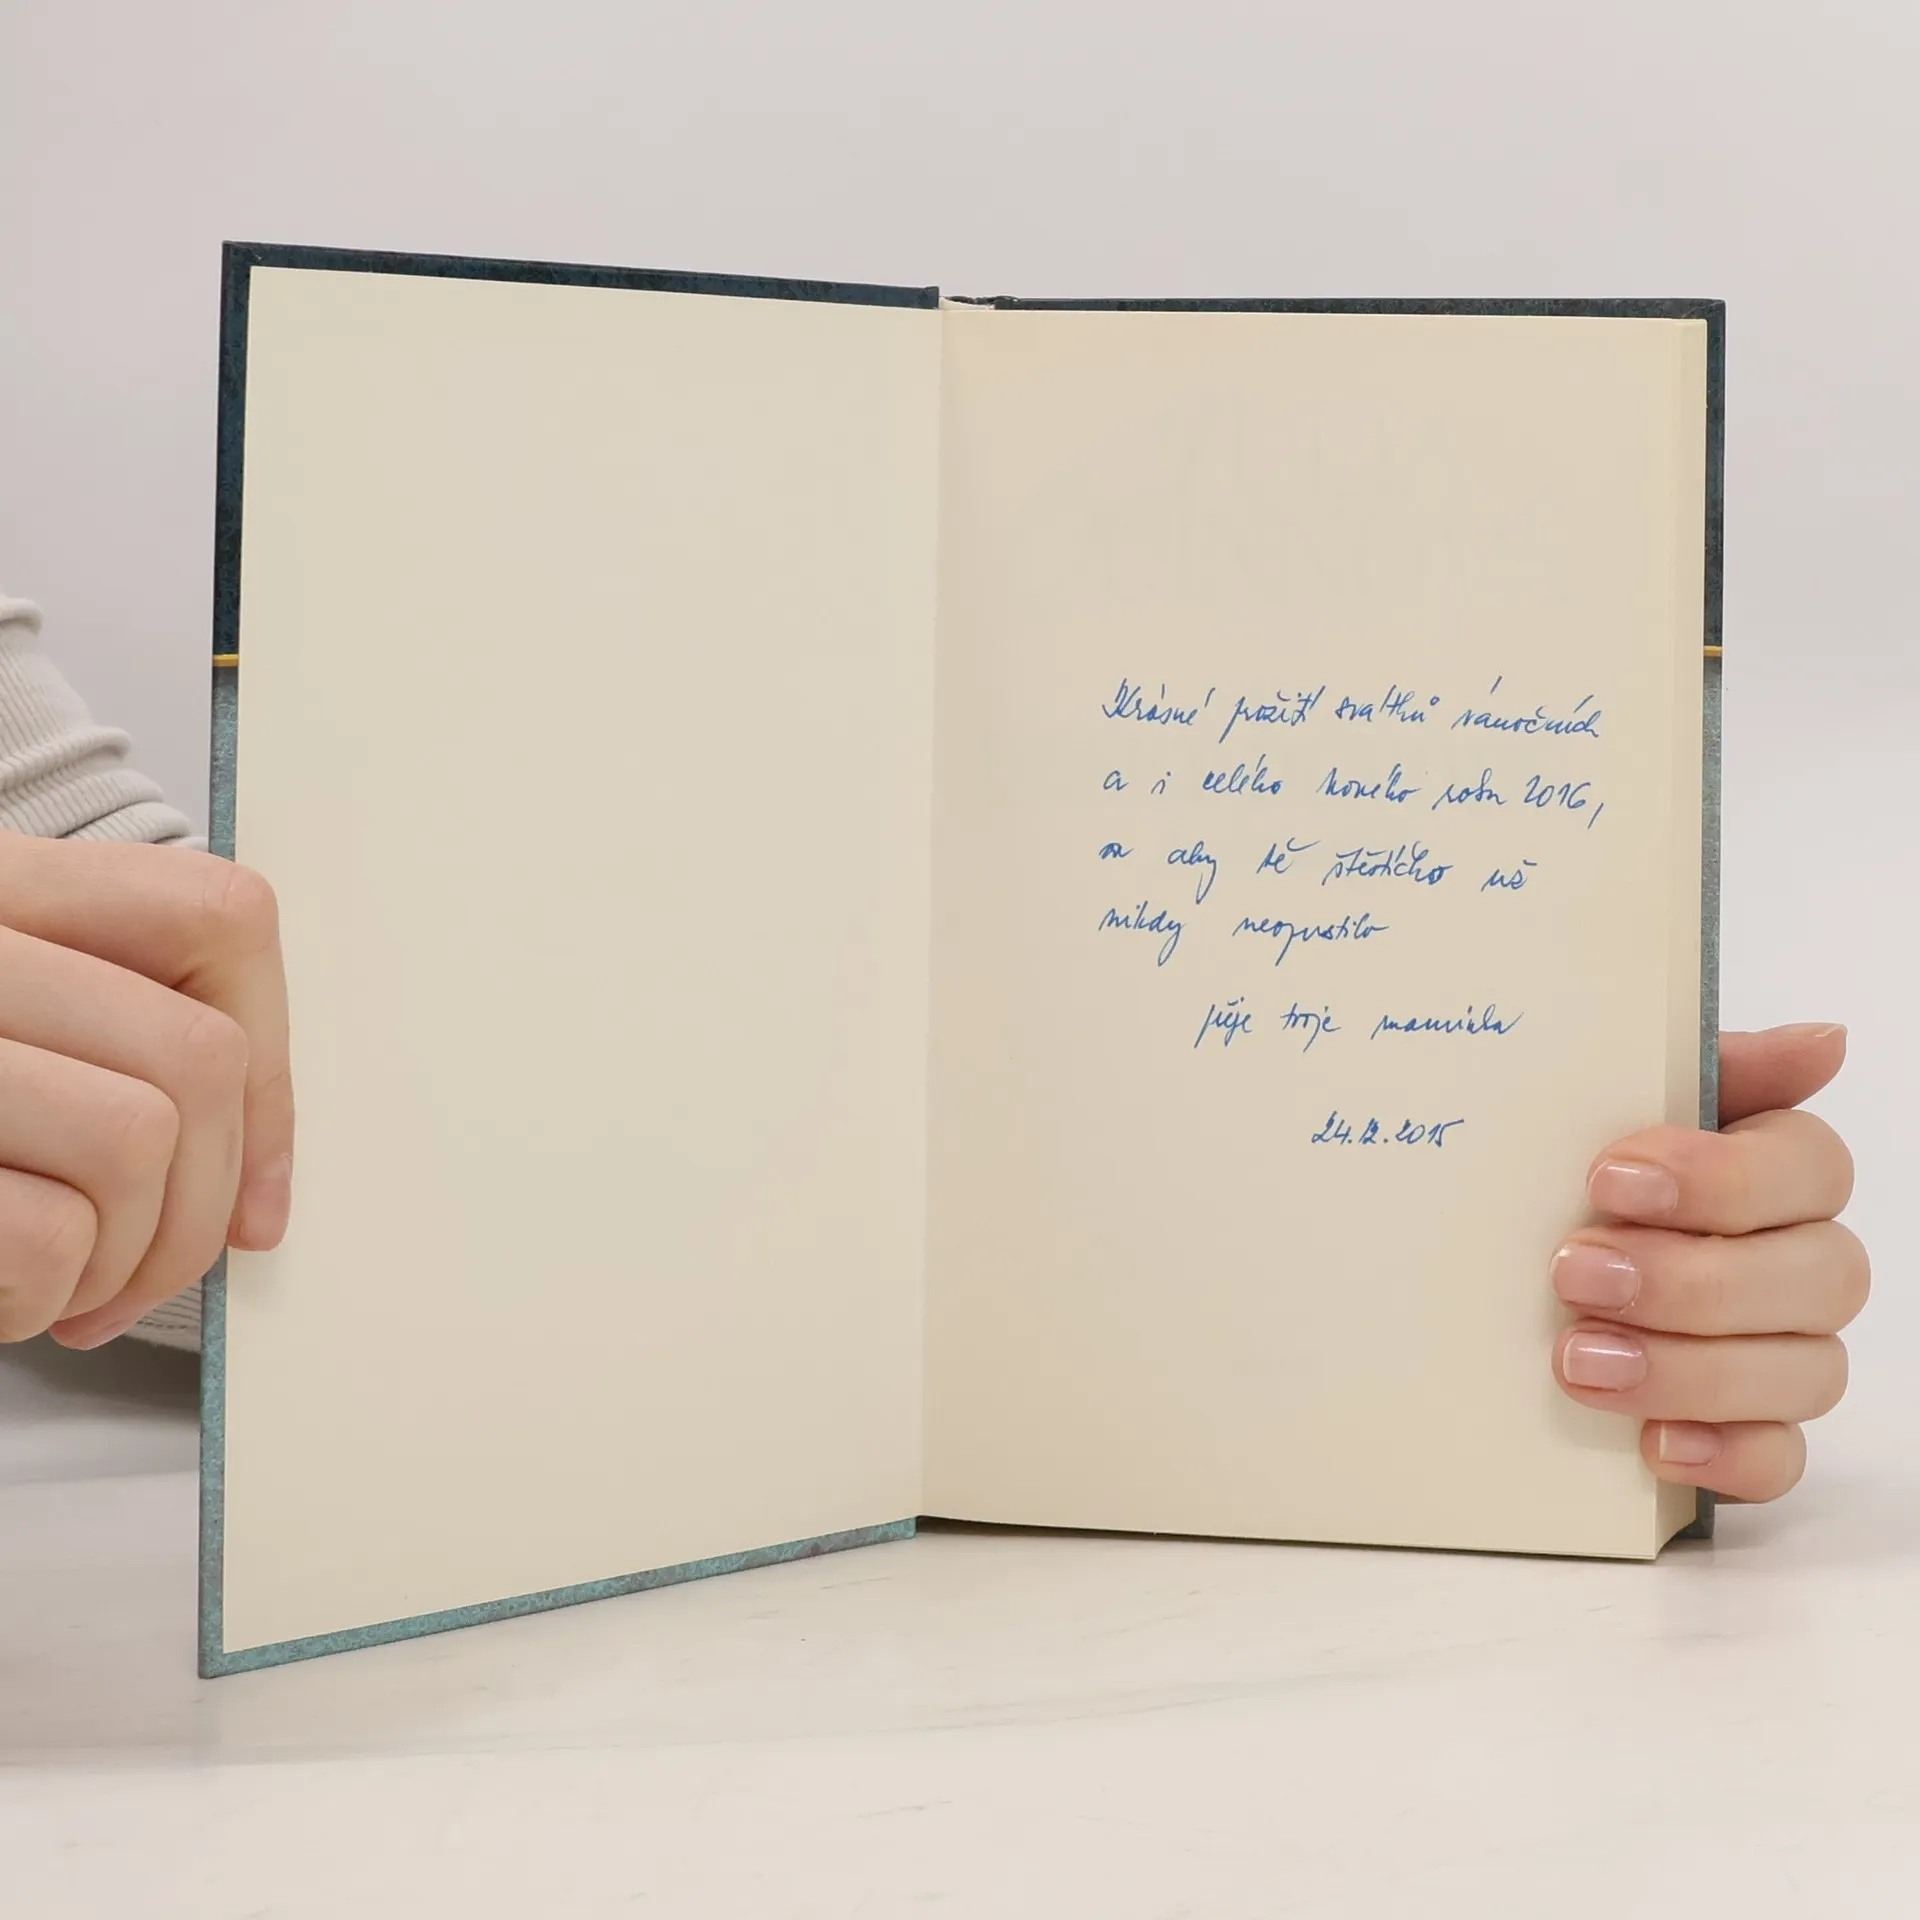 Krásné prožití svátků vánočních
a i celého nového roku 2016,
a aby tě štěstíčko už
nikdy neopustilo
přeje tvoje maminka
24.12.2015